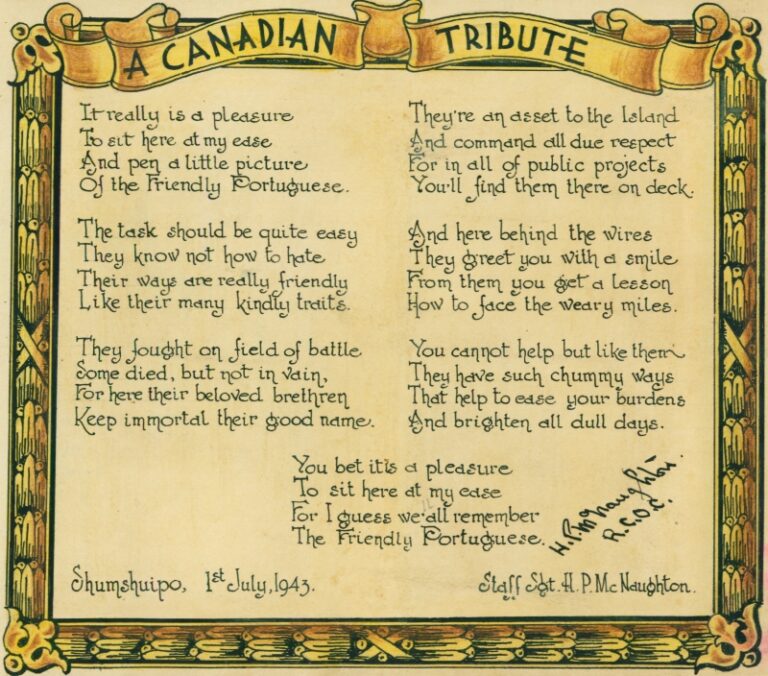 A CANADIAN TRIBUTE
It really is a pleasure
To sit here at my ease
And pen a little picture
Of the Friendly Portuguese.
The task should be quite easy
They know not how to hate
Their ways are really friendly
Like their many kindly traits.
They fought on field of battle
Some died, but not in vain,
For here their beloved brethren
Keep immortal their good name.
They're an asset to the Island
And command all due respect
For in all of public projects
You'll find them there on deck.
And here behind the wires
They greet you with a smile
From them you get a lesson
How to face the weary miles.
You cannot help but like them
They have such chummy ways
That help to ease your burdens
And brighten all dull days.
You bet it's a pleasure
To sit here at my ease
For I guess we'll all remember
The Friendly Portuguese.
H.P. McNaughton.
R.C.O.C.
Shumshuipo, 1st July, 1943.
Staff Sgt. H. P. McNaughton.